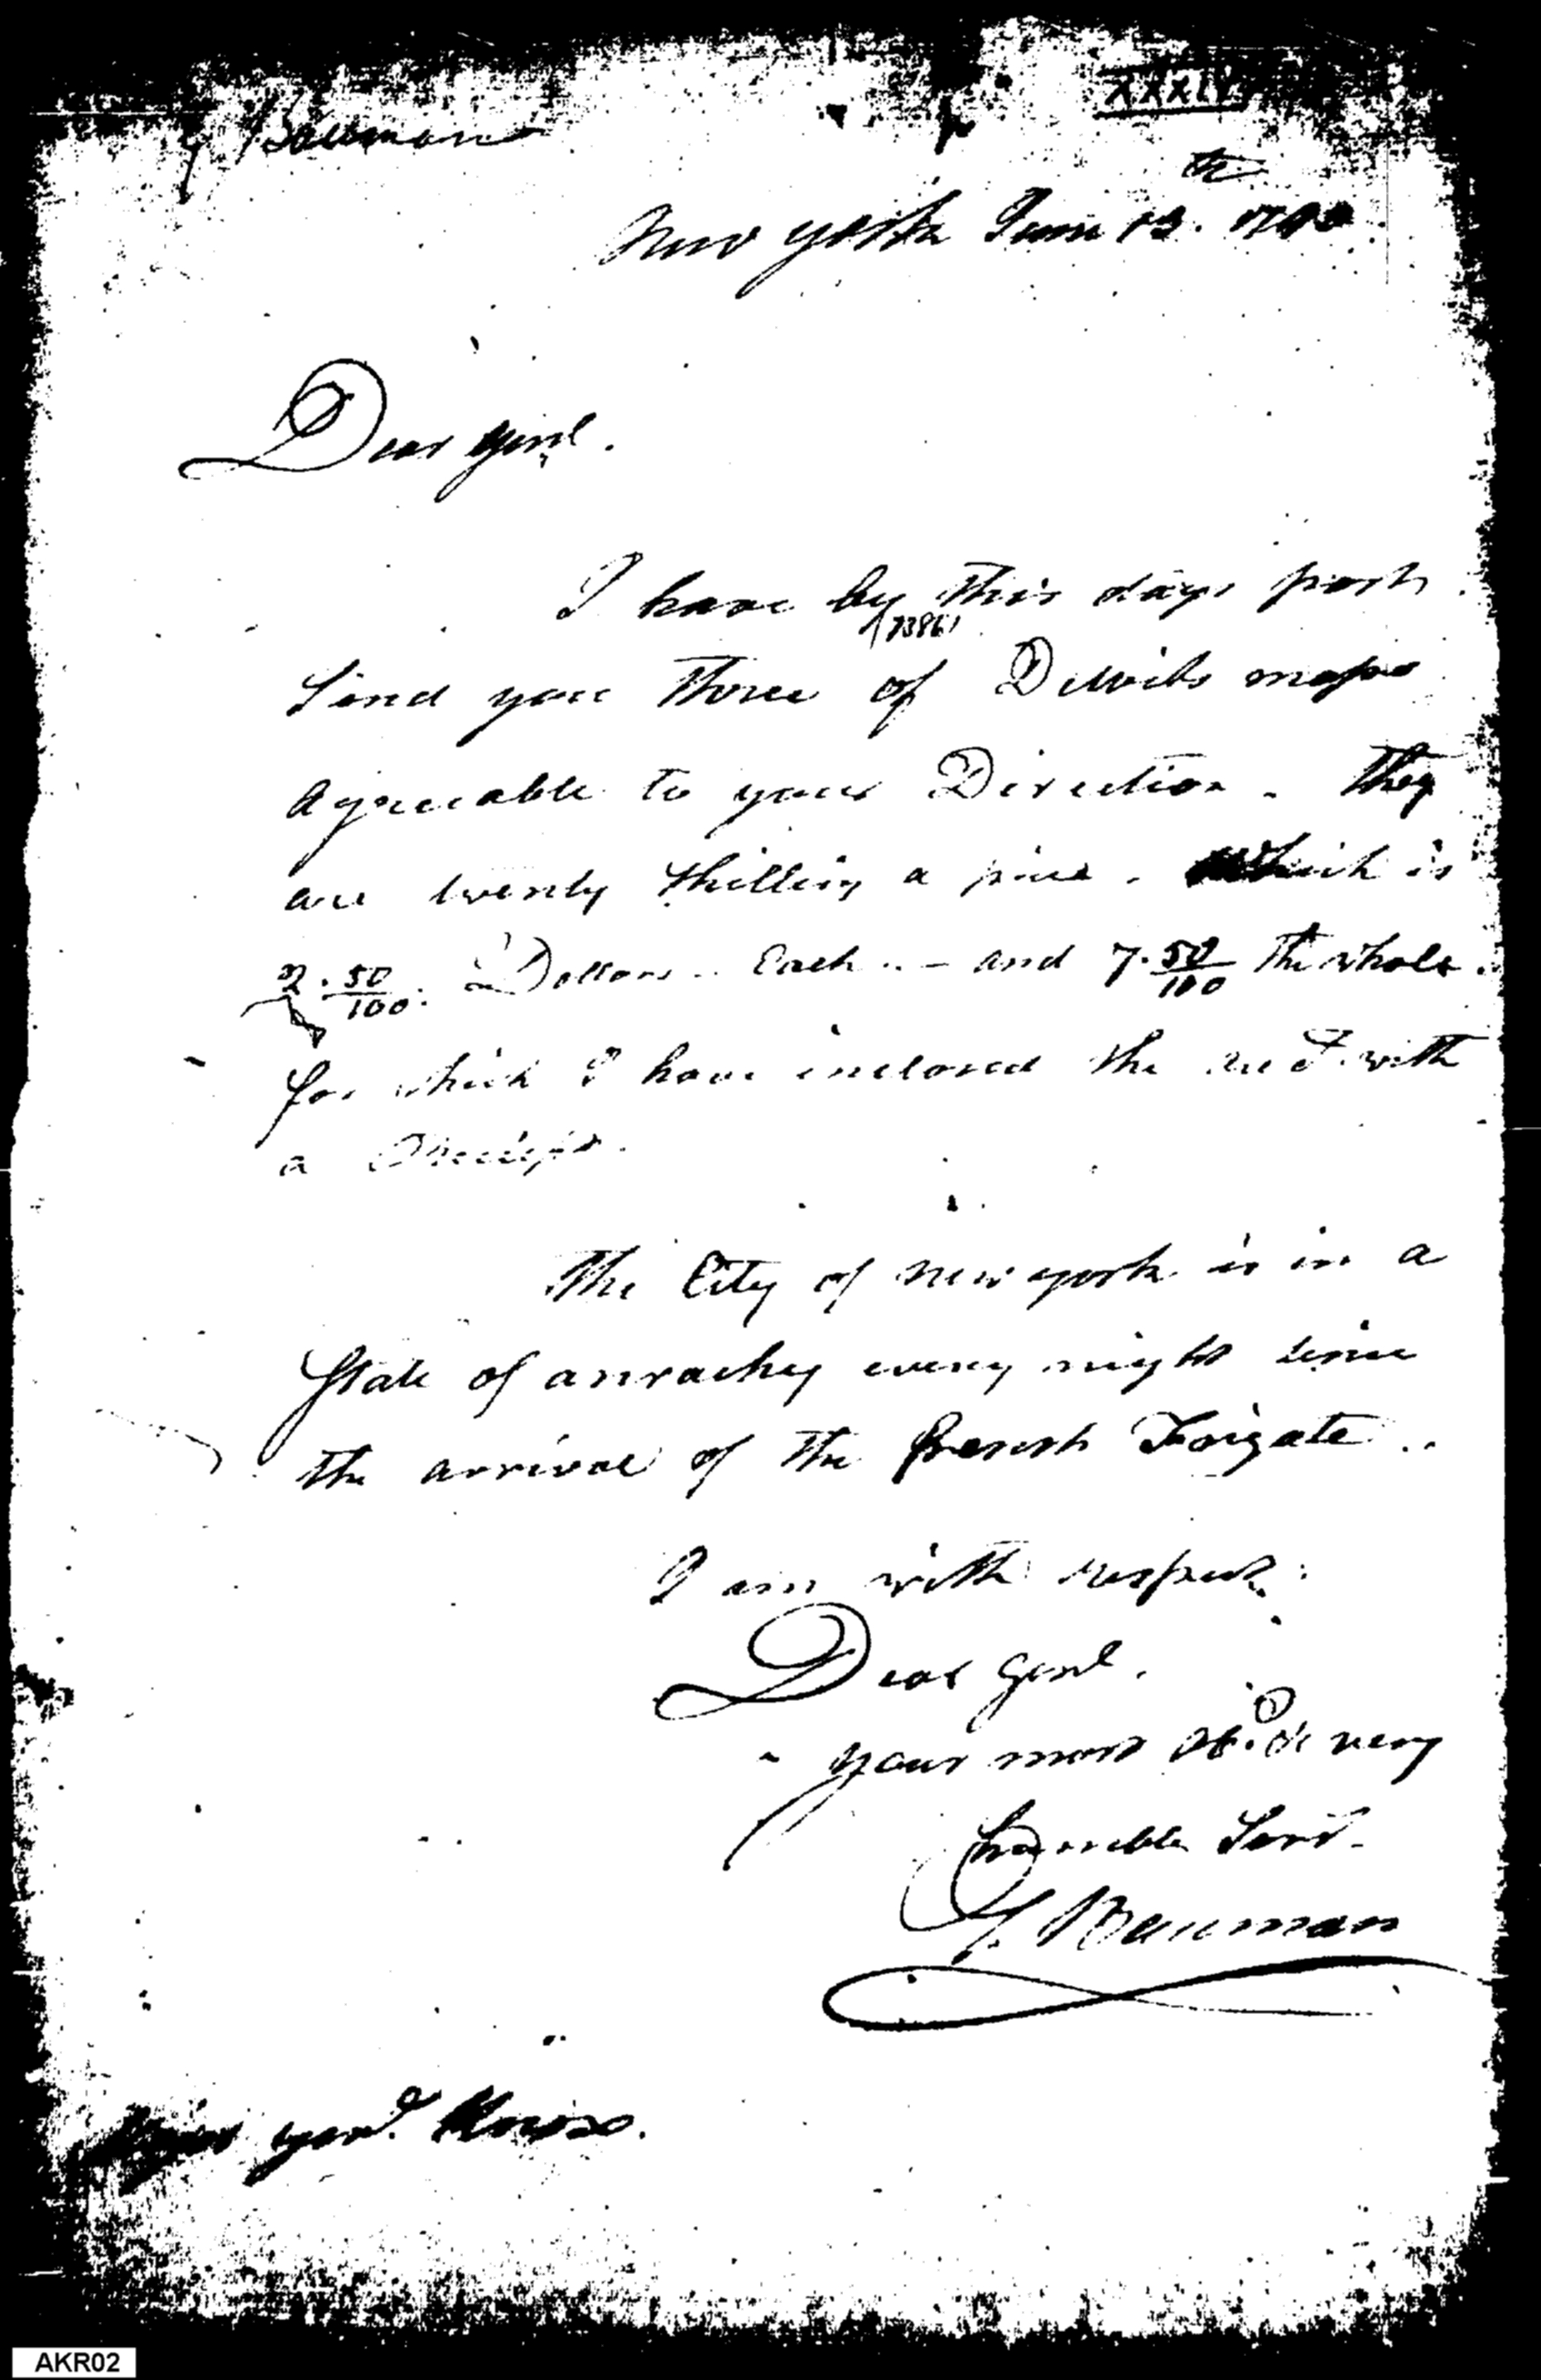 Bauman
XXXIV
New york June 13.th 1793
Dear Genl.
I have by this days post
(1386)
Send you three of Dewits maps
Agreeable to your Direction. they
are twenty Shilling a piece. Which is
2.50/100. Dollars.. Each.. – and 7.50/100 the whole.
for which I have inclosed the acct. with
a Receipt.
The City of new york is in a
State of anrachy every night since
the arrival of the french Frigate..
I am with respect.
Dear Genl.
your most Ob.d & very
humble Servt.
S. Bauman
Genl. Knox.
AKR02